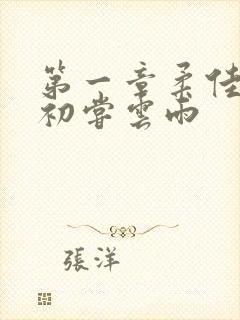 第一章柔佳
初嘗雲雨
張洋